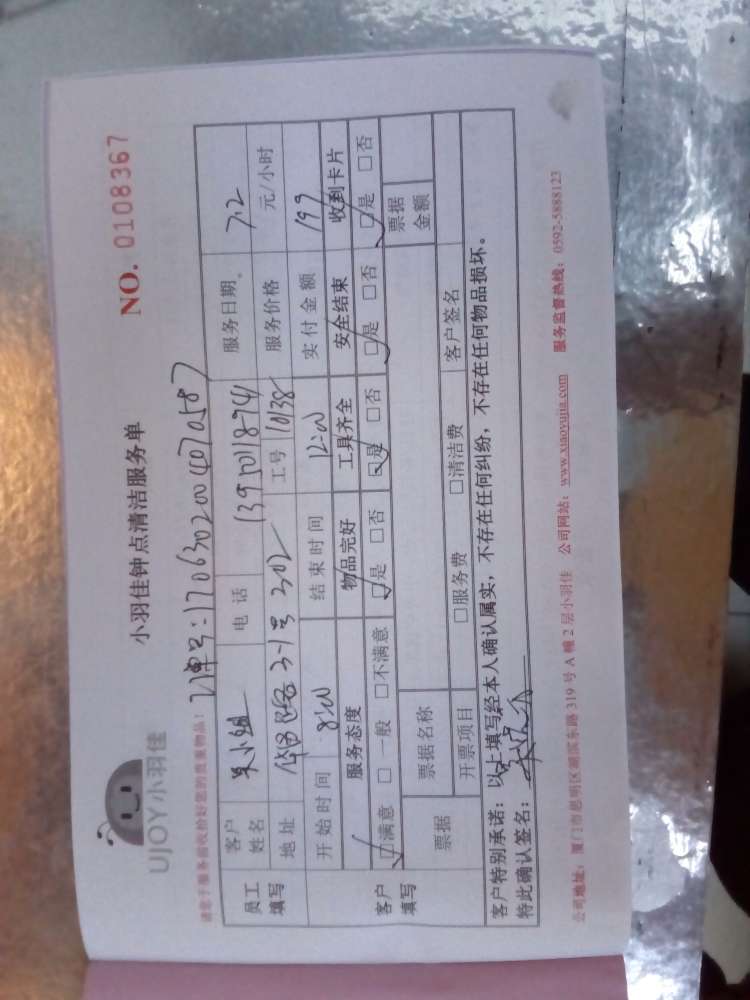 UJOY小羽佳
小羽佳钟点清洁服务单
NO. 0108367
请您于服务前收拾好您的贵重物品!
订单号:1706302004070587
员工填写 客户姓名 吴小姐 电话 13950118974 服务日期 7.2
地址 华昌路3-1号302 工号 10138 服务价格 元/小时
开始时间 8:00 结束时间 12:00 实付金额 199
客户填写 服务态度 物品完好 工具齐全 安全结束 收到卡片
☑满意 □一般 □不满意 ☑是 □否 ☑是 □否 ☑是 □否 ☑是 □否
票据 票据名称 票据金额
开票项目 □服务费 □清洁费 客户签名
客户特别承诺:以上填写经本人确认属实,不存在任何纠纷,不存在任何物品损坏。
特此确认签名:
公司地址:厦门市思明区湖滨东路319号A幢2层小羽佳 公司网站:www.xiaoyujia.com 服务监督热线:0592-5888123